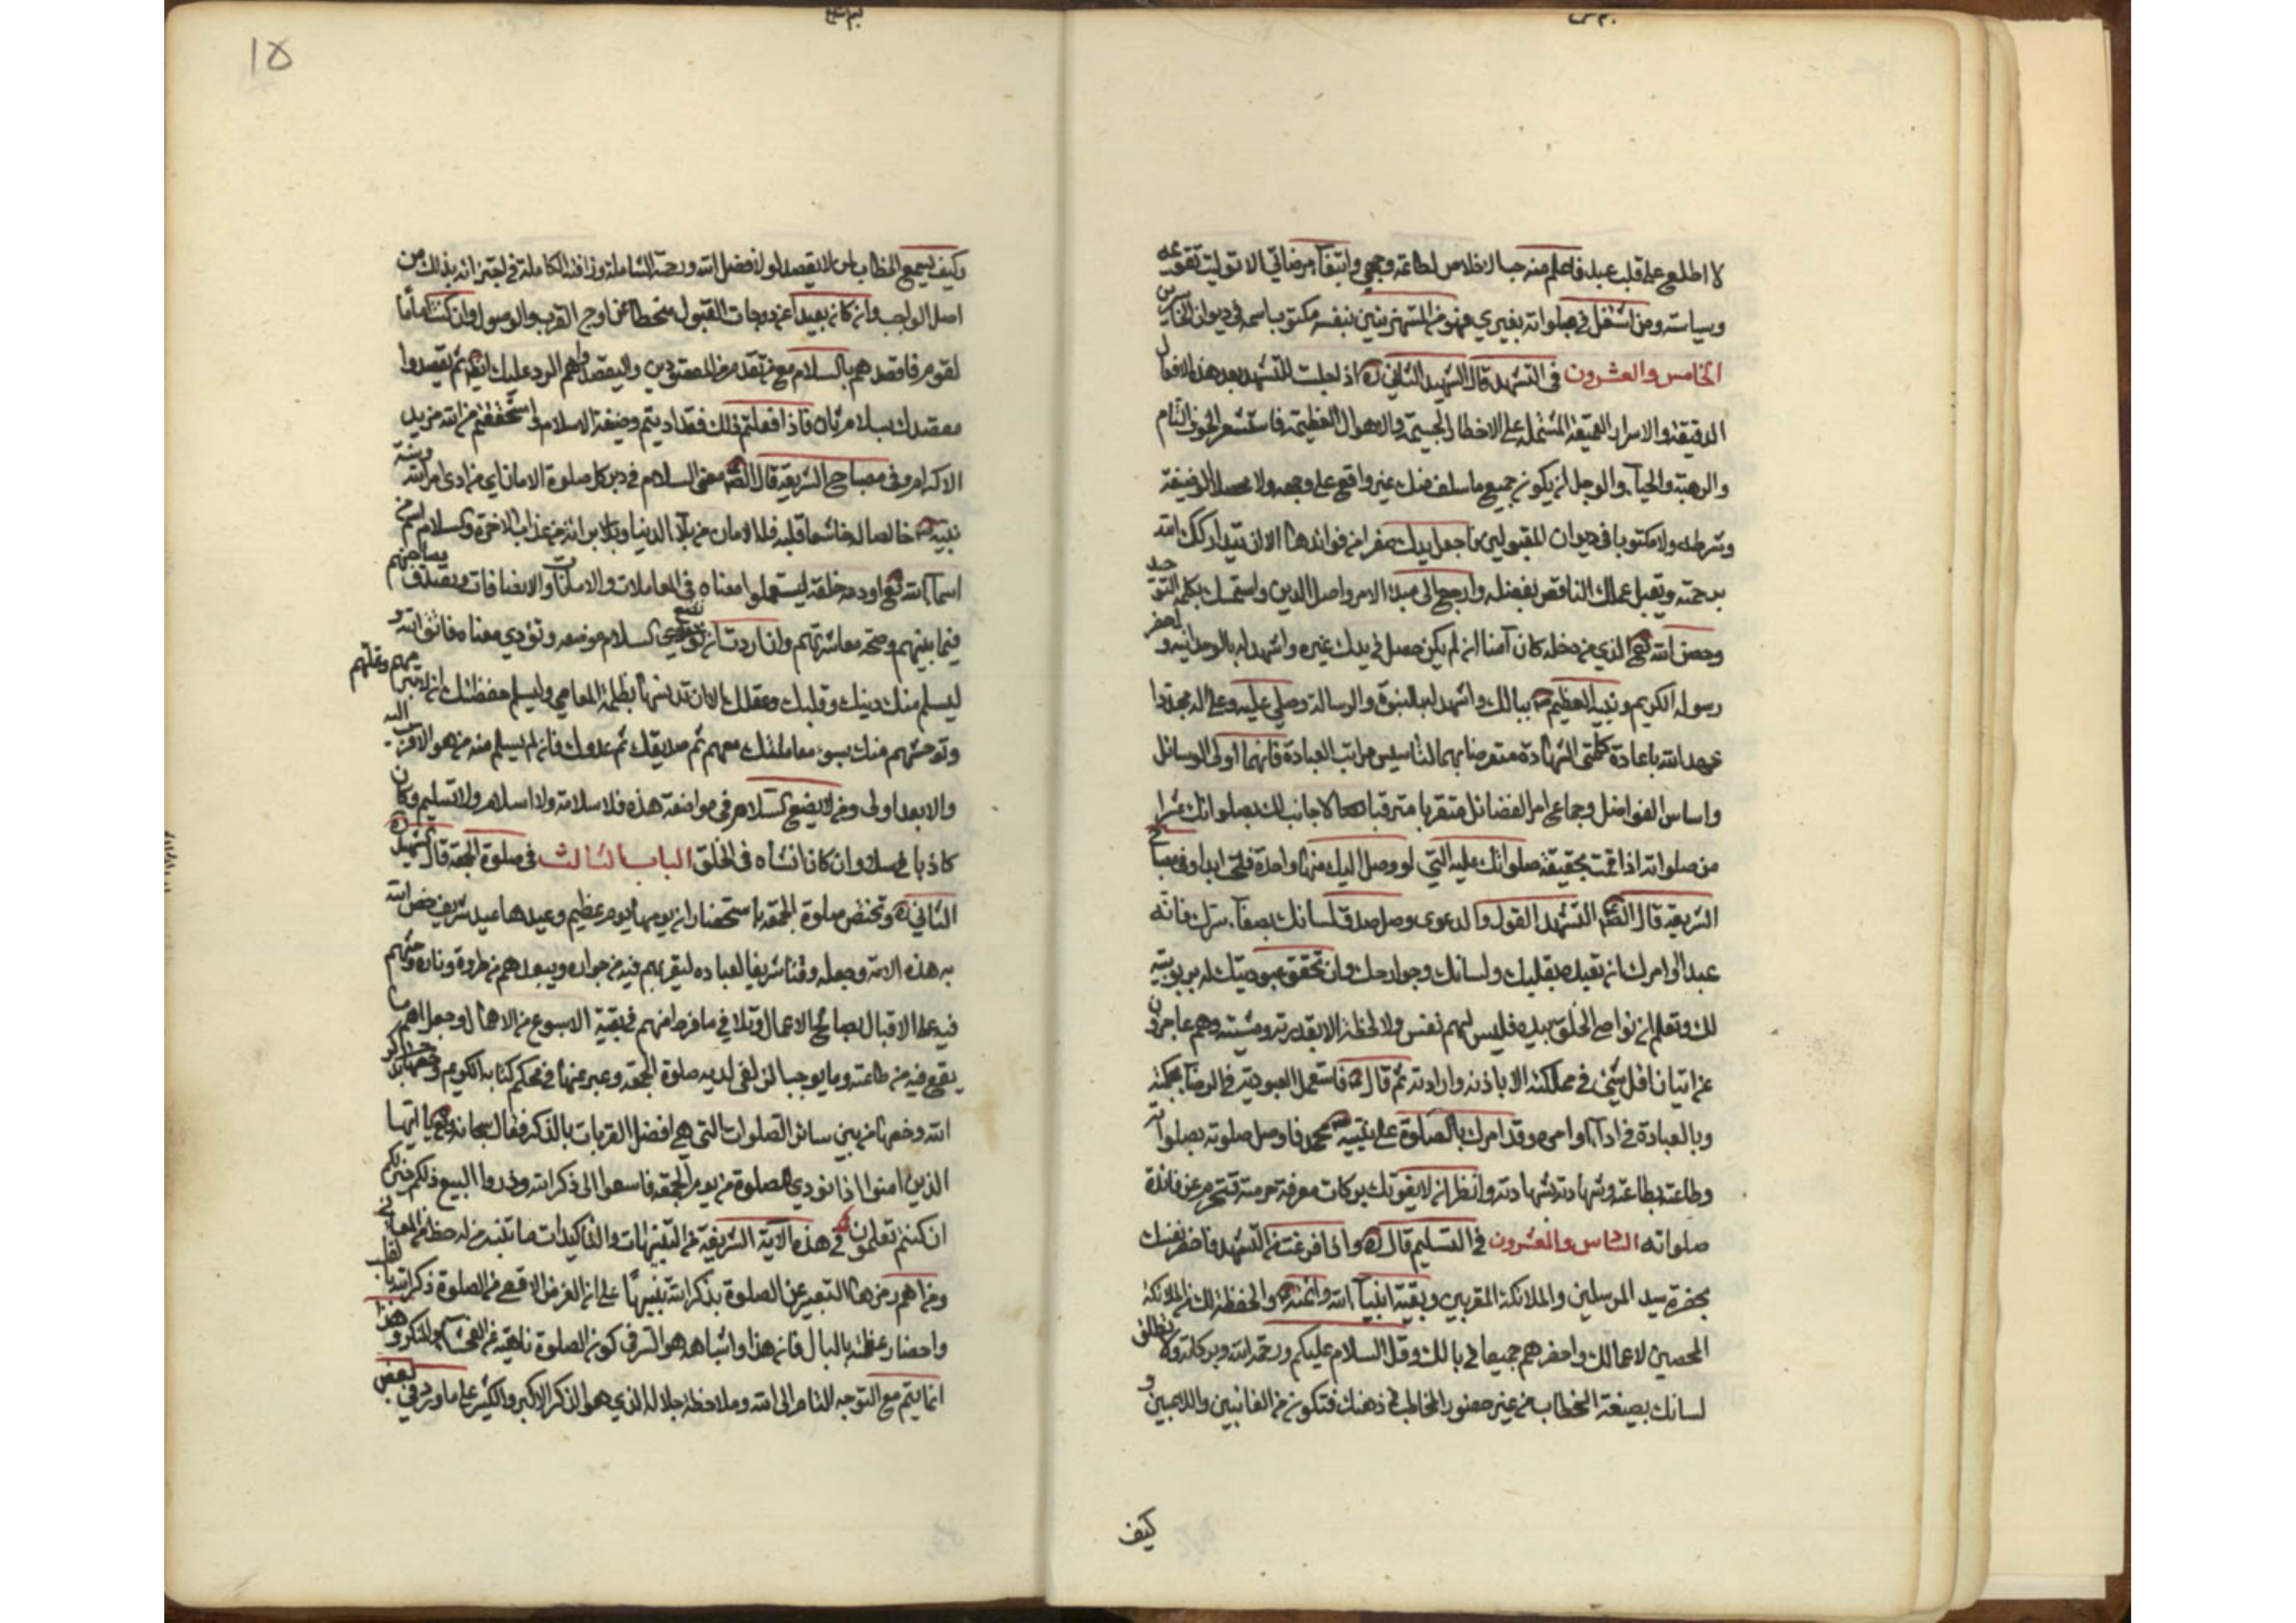 لا اطلع على قلب عبد فاعلم منه حب الاخلاص لطاعته وجهي وابتغاء مرضاتي الا توليت تقويمه
وسياسته ومن اشتغل في صلواته بغيري فهو من المستهزئين بنفسه مكتوب اسمه في ديوان الخاسرين
الخامس والعشرون في التشهد قال الشهيد الثاني ره اذا جلست للتشهد بعد هذه الافعال
الدقيقة والاسرار العميقة المشتملة على الاخطار الجسيمة والاهوال العظيمة فاستشعر الخوف التام
والرهبة والحياء والوجل ان يكون جميع ما سلف منك غير واقع على وجهه ولا محصلا لوظيفته
وشرطه ولا مكتوبا في ديوان المقبولين فاجعل يدك صفرا من فوائدها الا ان يتداركك الله
برحمته ويقبل عملك الناقص بفضله وارجع الى مبدء الامر واصل الدين واستمسك بكلمة التوحيد
وحصن الله تع الذي من دخله كان آمنا ان لم يكن حصل في يدك غيره واشهد له بالوحدانية واحضر
رسوله الكريم ونبيه العظيم ص ببالك واشهد له بالعبودية والرسالة وصل عليه وعلى اله مجددا
عهد الله باعادة كلمتي الشهادة متعرضا بهما لتاسيس مراتب العبادة فانهما اولى الوسائل
واساس الفواضل وجماع امر الفضائل متقربا مترقبا لاجابته لك بصلواتك عشرا
من صلواته اذا قمت بحقيقة صلواتك عليه التي لو وصل اليك منها واحدة فلحت ابدا وفي مصباح
الشريعة قال الصادق ع التشهد القول والدعوى وصل صدق لسانك بصفاء سرك فانه
عبدا وامرك ان تعبده بقلبك ولسانك وجوارحك وان تحقق عبوديتك له بربوبيته
لك وتعلم ان نواصي الخلق بيده فليس لهم نفس ولا لحظة الا بقدرته ومشيته وهم عاجزون
عن اتيان اقل شيء في مملكته الا باذنه وارادته ثم قال ع فاستعمل العبودية في الرضا بحكمته
وبالعبادة في اداء اوامره وقد امرك بالصلوة على نبيه محمد ص فاوصل صلوته بصلواته
وطاعته بطاعته وشهادته بشهادته وانظر ان لا يفوتك بركات معرفة حرمته فتحرم عن فائدة
صلواته السادس والعشرون في التسليم قال ره واذا فرغت من التشهد فاحضر نفسك
بحضرة سيد المرسلين والملائكة المقربين وبقية انبياء الله وائمته والحفظة لك من الملائكة
المحصين لاعمالك واحضرهم جميعا في بالك وقل السلام عليكم ورحمة الله وبركاته ولا تطلق
لسانك بصيغة الخطاب من غير حضور المخاطب في ذهنك فتكون من العابثين واللاعبين و
كيف
١٥
وكيف يسمع الخطاب لمن لا يقصد لولا فضل الله ورحمته الشاملة ورافته الكاملة في اجتزائه بذلك من
اصل الواجب وان كان بعيدا عن درجات القبول منحطا عن اوج القرب والوصول وان كنت اماما
لقوم فاقصدهم بالسلام مع من تقدم من المقصودين وليقصدوا هم الرد عليك ايضا ثم يقصدوا
مقصدك بسلام ثان فاذا فعلتم ذلك فقد اديتم وظيفة السلام واستحققتم من الله مزيد
الاكرام وفي مصباح الشريعة قال الصادق ع معنى السلام في دبر كل صلوة الامان اي من ادى امر الله وسنة
نبيه ص خالصا له خاشعا قلبه فله الامان من بلاء الدنيا وبراءة من عذاب الاخرة والسلام اسم من
اسماء الله تع اودعه خلقه ليستعملوا معناه في المعاملات والامانات والاضافات وتصديق مصاحبتهم
فيما بينهم وصحة معاشرتهم وان اردت ان تضع السلام موضعه وتؤدي معناه فاتق الله و
ليسلم منك دينك وقلبك وعقلك الا تدنسها بظلمة المعاصي ولتسلم حفظتك ان لا تبرمهم وتملهم
وتوحشهم منك بسوء معاملتك معهم ثم صديقك ثم عدوك فان لم يسلم منه من هو الاقرب اليه
والابعد اولى ومن لا يضع السلام في مواضعه هذه فلا سلامة ولا اسلام ولا تسليم وكان
كاذبا في سلامه وان كان افشاه في الخلق الباب الثالث في صلوة الجمعة قال الشهيد
الثاني ره وتختص صلوة الجمعة باستحضار ان يومها يوم عظيم وعيدها عيد شريف خص الله
به هذه الامة وجعله وقتا شريفا لعباده ليقربهم فيه من جواره ويبعدهم من طرده وناره وحثهم
فيه على الاقبال بصالح الاعمال وتلافي ما فرط منهم في بقية الاسبوع من الاهمال وجعل اهم ما
يقع فيه من طاعته وما يوجب الزلفى لديه صلوة الجمعة وعبر عنها في محكم كتابه الكريم بذكر
الله وخصها من بين سائر الصلوات التي هي افضل القربات بالذكر فقال سبحانه وتع يا ايها
الذين امنوا اذا نودي للصلوة من يوم الجمعة فاسعوا الى ذكر الله وذروا البيع ذلكم خير لكم
ان كنتم تعلمون وفي هذه الآية الشريفة من التنبيهات والتاكيدات ما يتنبه من له حظ من المعاني
ومن اهم رمزها التعبير عن الصلوة بذكر الله تنبيها على ان الغرض الاقصى من الصلوة ذكر الله بالقلب
واحضار عظمته بالبال فان هذا واشباهه هو السر في كون الصلوة ناهية عن الفحشاء والمنكر وهذا
انما يتم مع التوجه التام الى الله وملاحظة جلاله الذي هو الذكر الاكبر والكثير على ما ورد في بعض